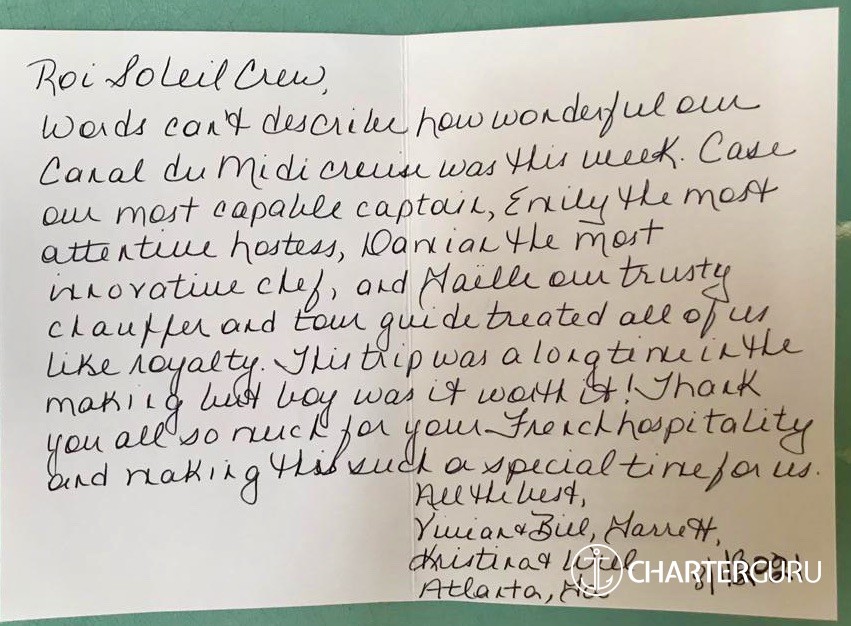 Roi Soleil Crew,
Words can't describe how wonderful our
Canal du Midi creuise was this week. Case
our most capable captain, Emily the most
attentive hostess, Damian the most
innovative chef, and Maëlle our trusty
chauffer and tour guide treated all of us
like royalty. This trip was a long time in the
making but boy was it worth it! Thank
you all so much for your French hospitality
and making this such a special time for us.
All the best,
Vivian & Bill, Garrett,
Kristina & Will
Atlanta,
CHARTERGURU